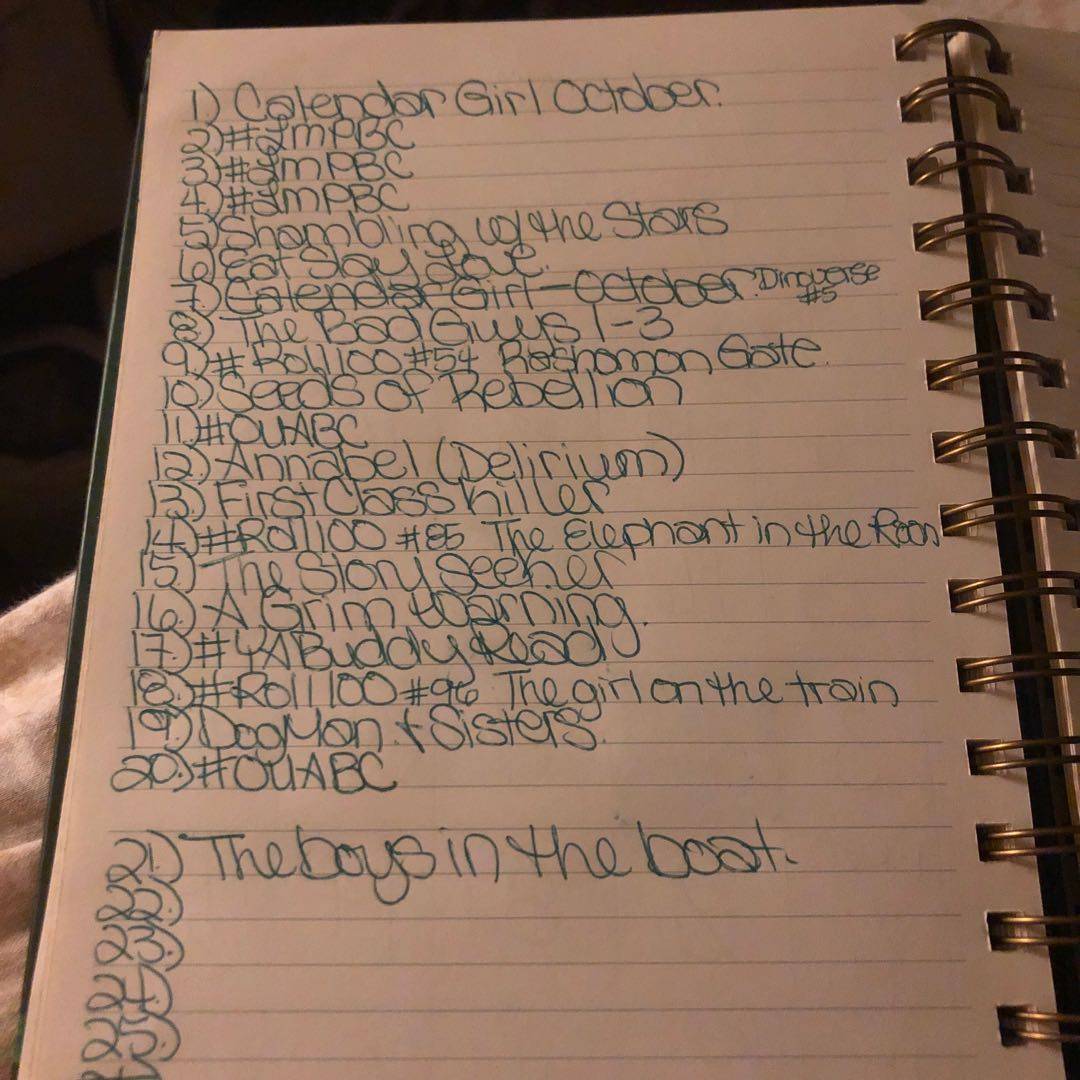 1) Calendar Girl October.
2) #ImPBC
3) #ImPBC
4) #ImPBC
5) Shambling w/ the Stars
6) Eat Slay Love.
7) Calendar Girl - October. Dinoverse #5
8) The Bad Guys 1-3
9) #Roll100 #54 Rashomon Gate.
10) Seeds of Rebellion
11) #OUABC
12) Annabel (Delirium)
13) First Class Killer
14) #Roll100 #85 The Elephant in the Room
15) The Story Seeker
16) A Grim Warning.
17) #YABuddyRead
18) #Roll100 #96 The girl on the train
19) DogMan + Sisters.
20.) #OUABC
21) The boys in the boat.
22.)
23.)
24.)
25.)